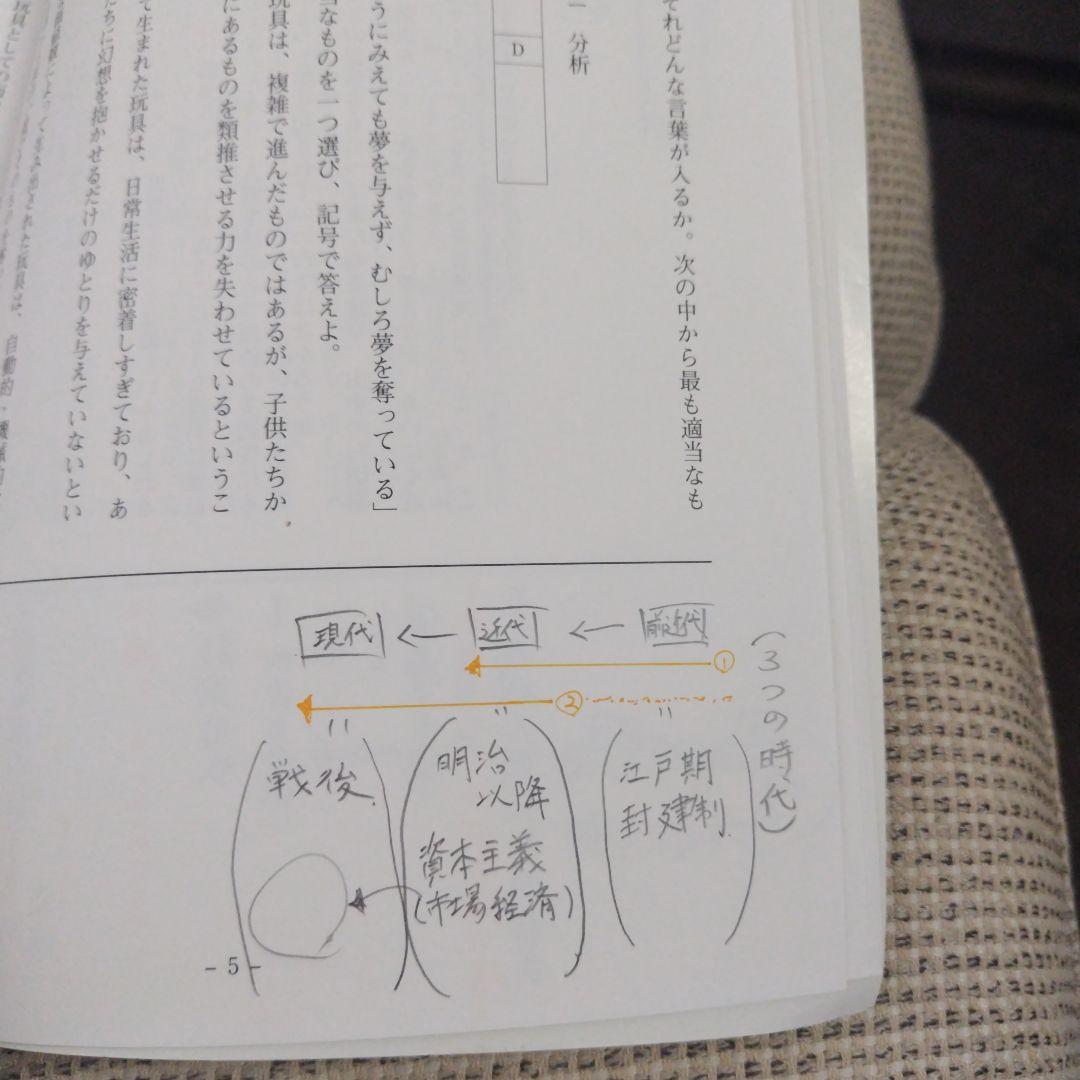 それどんな言葉が入るか。次の中から最も適当なも
分析
D
うにみえても夢を与えず、むしろ夢を奪っている」
当なものを一つ選び、記号で答えよ。
玩具は、複雑で進んだものではあるが、子供たちか
にあるものを類推させる力を失わせているというこ
て生まれた玩具は、日常生活に密着しすぎており、あ
たちに幻想を抱かせるだけのゆとりを与えていないとい
された玩具は、自動的・機械的
玩具としての
(3つの時代)
前近代 ← 近代 ← 現代
①
②
江戸期
封建制
明治
以降
資本主義
(市場経済)
戦後
- 5 -